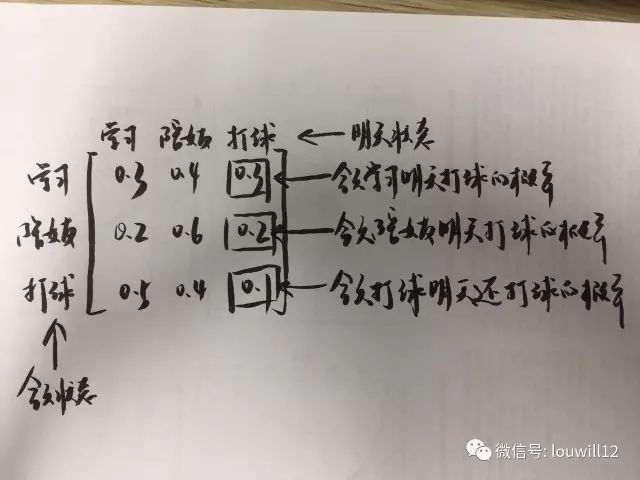 学习 陪女友 打球 ← 明天状态
学习 0.3 0.4 0.3 ← 今天学习明天打球的概率
陪女友 0.2 0.6 0.2 ← 今天陪女友明天打球的概率
打球 0.5 0.4 0.1 ← 今天打球明天还打球的概率
↑
今天状态
微信号: louwill12